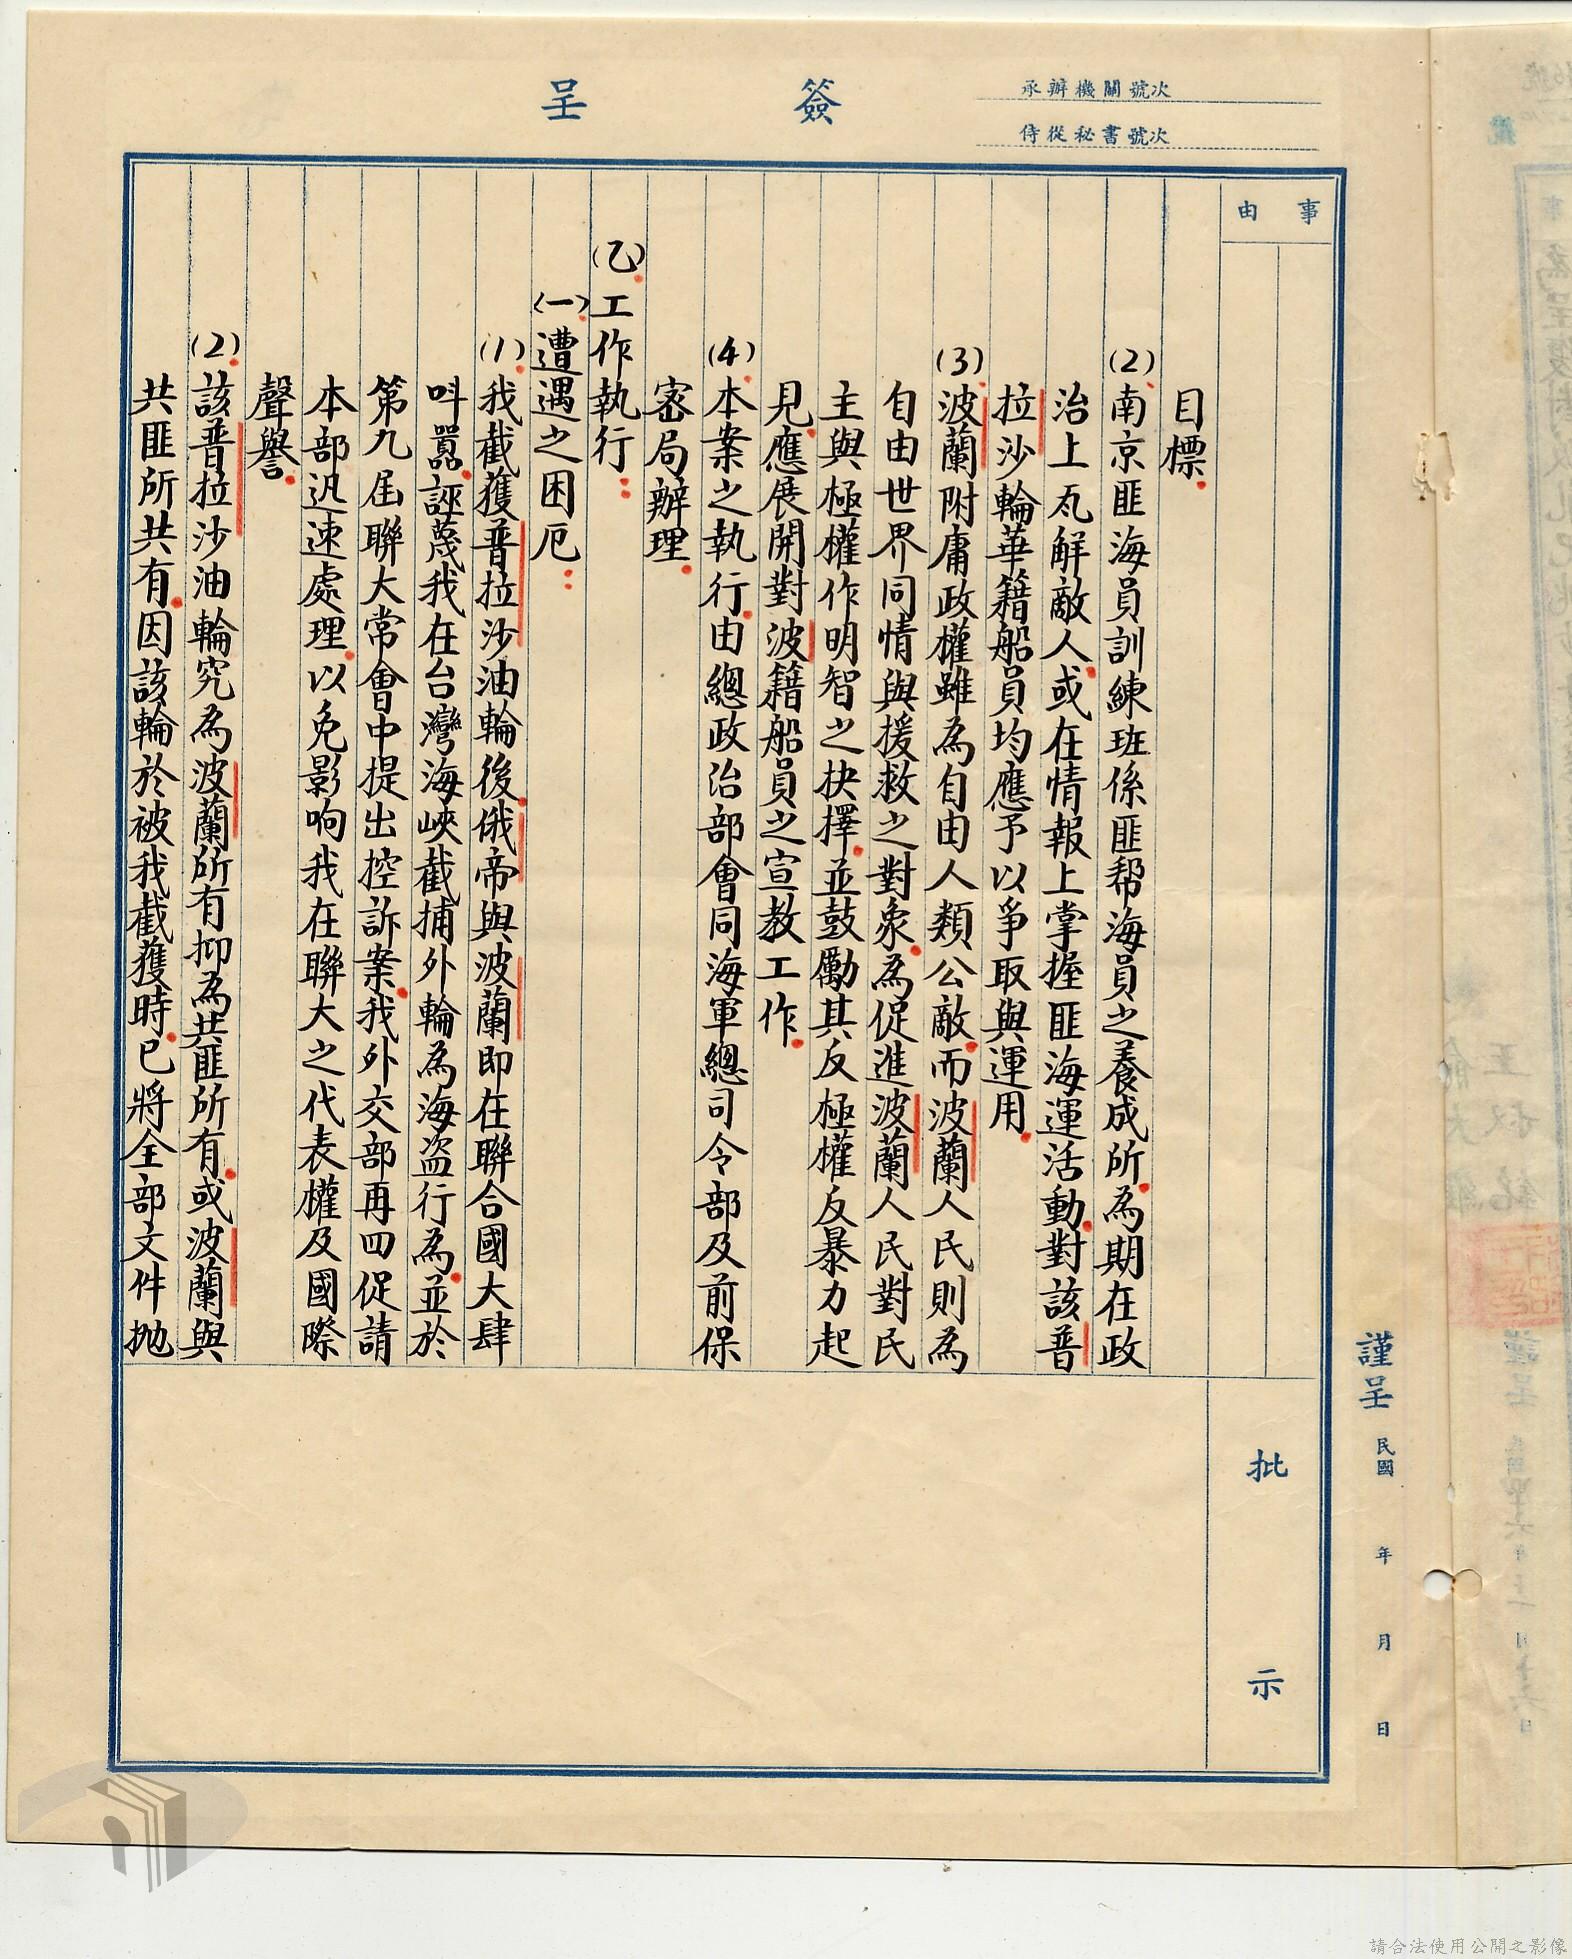 簽呈
承辦機關號次
侍從秘書號次
事由
目標。
(2)南京匪海員訓練班係匪帮海員之養成所。為期在政
治上瓦解敵人。或在情報上掌握匪海運活動。對該普
拉沙輪華籍船員均應予以爭取與運用。
(3)波蘭附庸政權雖為自由人類公敵。而波蘭人民則為
自由世界同情與援救之對象。為促進波蘭人民對民
主與極權作明智之抉擇。並鼓勵其反極權反暴力起
見。應展開對波籍船員之宣教工作。
(4)本案之執行。由總政治部會同海軍總司令部及前保
密局辦理。
(乙)工作執行：
(一)遭遇之困厄：
(1)我截獲普拉沙油輪後。俄帝與波蘭即在聯合國大肆
叫囂。誣蔑我在台灣海峽截捕外輪為海盜行為。並於
第九屆聯大常會中提出控訴案。我外交部再四促請
本部迅速處理。以免影响我在聯大之代表權及國際
聲譽。
(2)該普拉沙油輪究為波蘭所有抑為共匪所有。或波蘭與
共匪所共有。因該輪於被我截獲時。已將全部文件拋
批示
謹呈
民國 年 月 日
請合法使用公開之影像